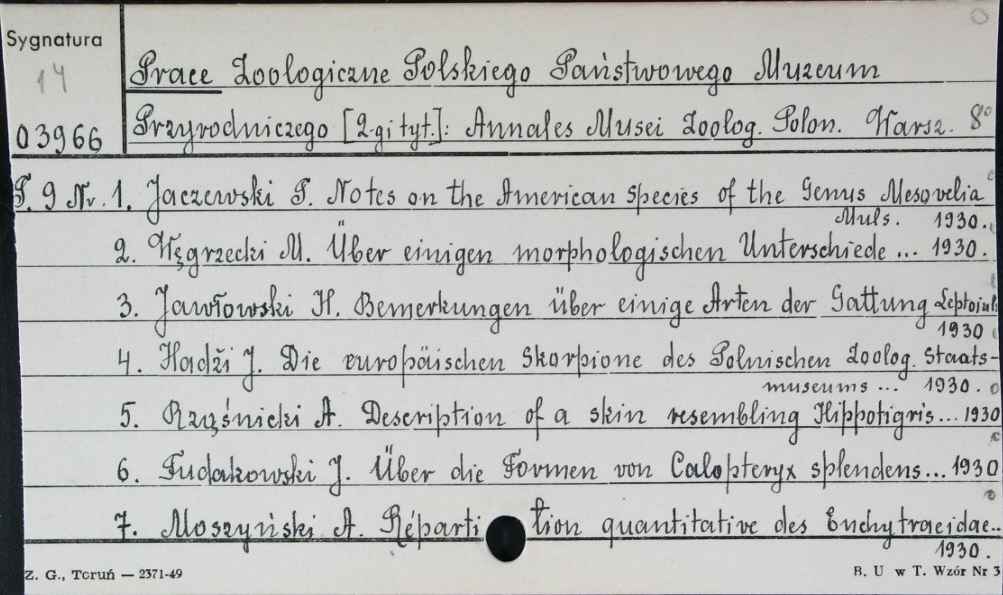 Sygnatura
14
03966
Prace Zoologiczne Polskiego Państwowego Muzeum
Przyrodniczego [2-gi tyt.]: Annales Musei Zoolog. Polon. Warsz. 8°
T. 9 Nr. 1. Jaczewski T. Notes on the American species of the Genus Mesovelia
Muls. 1930.
2. Węgrzecki M. Über einigen morphologischen Unterschiede ... 1930.
3. Jawłowski H. Bemerkungen über einige Arten der Gattung Leptoiul
1930
4. Hadži J. Die europäischen Skorpione des Polnischen Zoolog. Staats-
museums ... 1930.
5. Rząśnicki A. Description of a skin resembling Hippotigris... 1930
6. Fudakowski J. Über die Formen von Calopteryx splendens... 1930
7. Moszyński A. Réparti tion quantitative des Enchytraeidae..
1930.
Z. G., Toruń — 2371-49
B. U w T. Wzór Nr 3